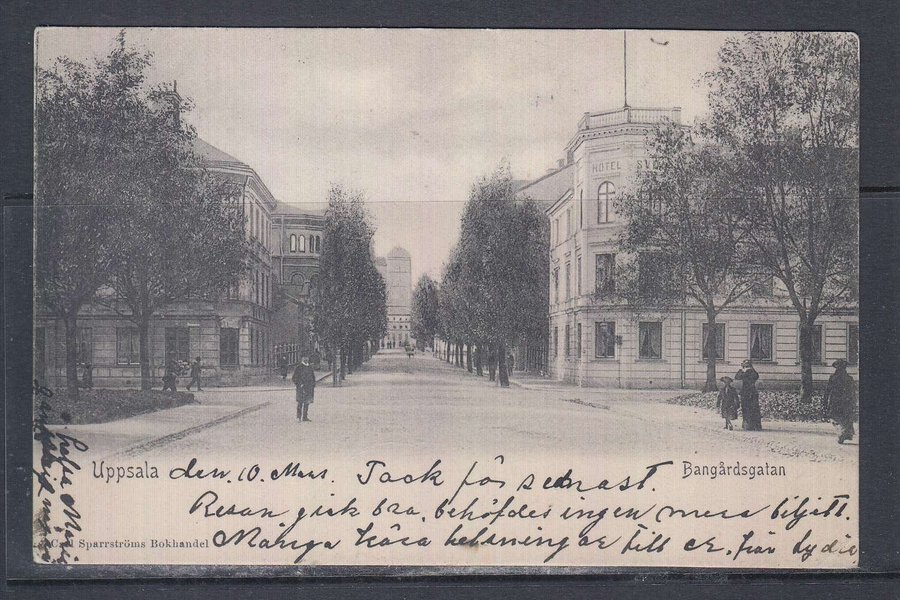 HOTEL SV
Uppsala den. 10. Mars. Tack för senast. Bangårdsgatan
Resan gick bra, behöfdes ingen mera biljett.
Carl Sparrströms Bokhandel Många kära helsningar till er, från Lydia